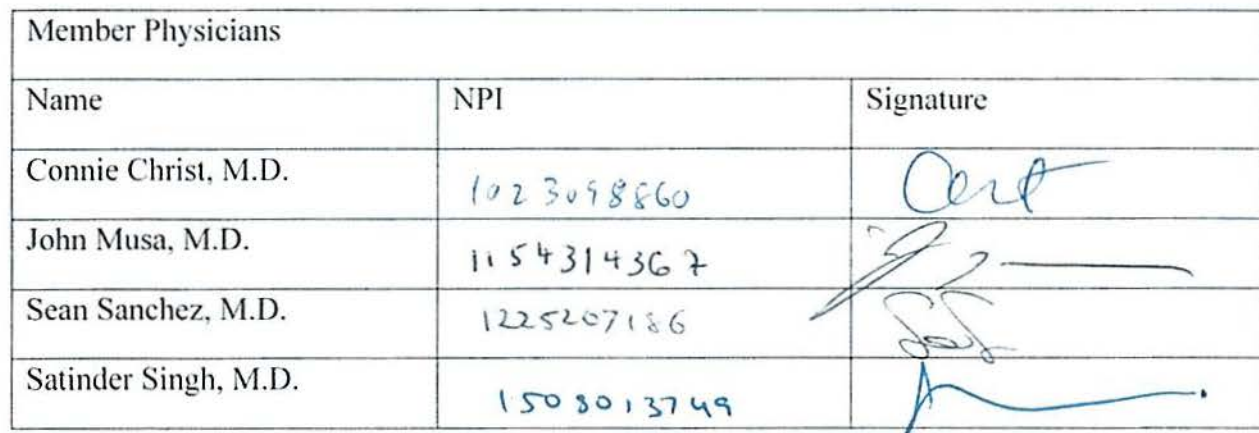 Member Physicians
Name NPI Signature
Connie Christ, M.D. 1023098860
John Musa, M.D. 1154314367
Sean Sanchez, M.D. 1225207186
Satinder Singh, M.D. 1508013749